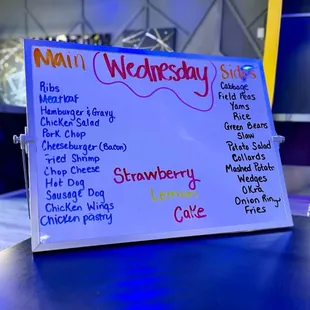 Main
Wednesday
Sides
Ribs
Meatloaf
Hamburger & Gravy
Chicken Salad
Pork Chop
Cheeseburger (Bacon)
Fried Shrimp
Chop Cheese
Hot Dog
Sausage Dog
Chicken Wings
Chicken pastry
Strawberry
Lemon
Cake
Cabbage
Field Peas
Yams
Rice
Green Beans
Slaw
Potato Salad
Collards
Mashed Potato
Wedges
Okra
Onion Ring
Fries